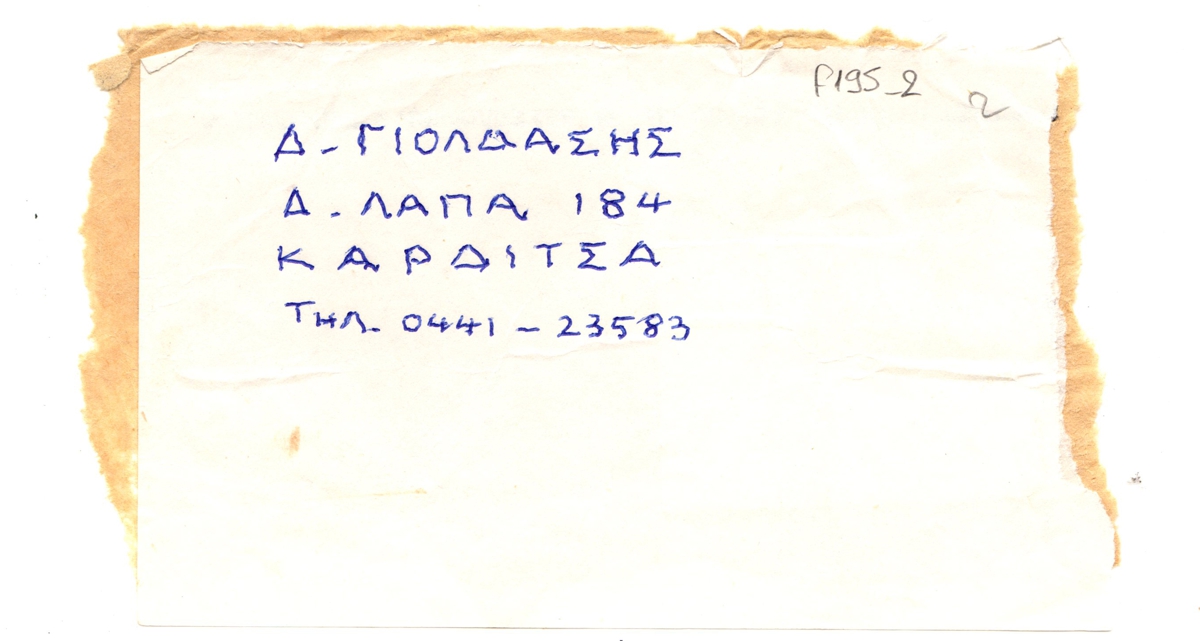 f195_2
2
Δ. ΓΙΟΛΔΑΣΗΣ
Δ. ΛΑΠΑ 184
ΚΑΡΔΙΤΣΑ
ΤΗΛ. 0441 - 23583